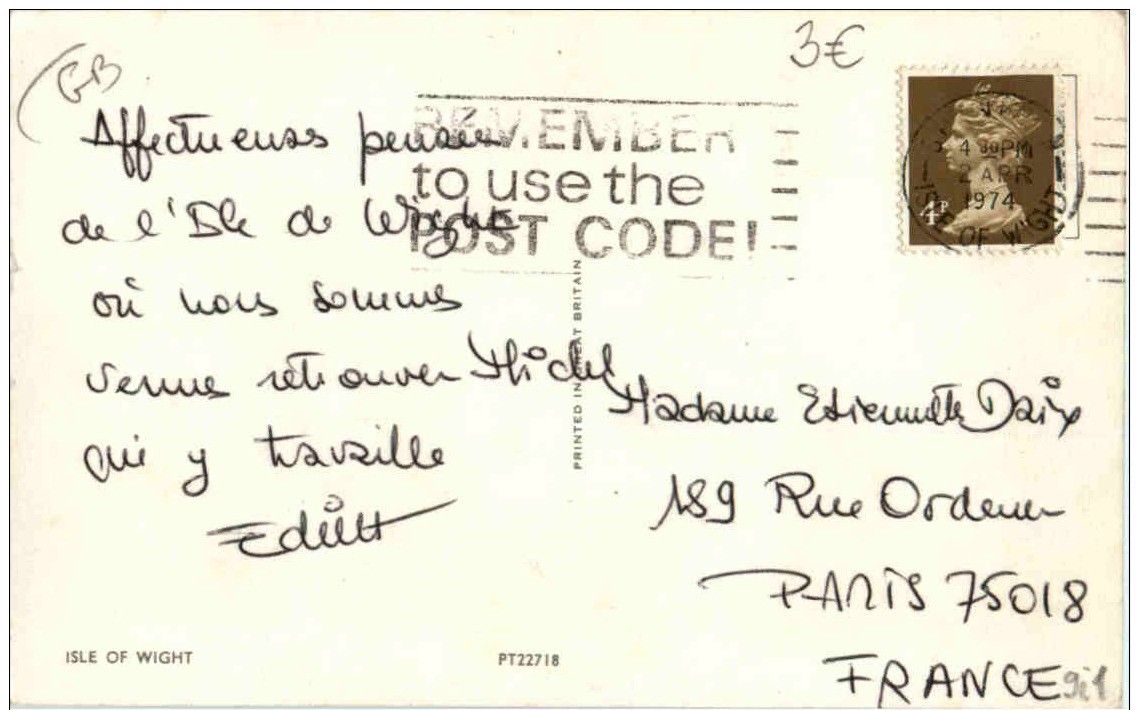 3€
GB
REMEMBER
to use the
POST CODE!
4 30 PM
2 APR
1974
ISLE OF WIGHT
4P
Affectueuses pensées
de l'Isle de Wight
où nous sommes
venus retrouver Michel
qui y travaille
Edith
PRINTED IN GREAT BRITAIN
Madame Etiennette Daix
189 Rue Ordener
PARIS 75018
FRANCE
ISLE OF WIGHT
PT22718